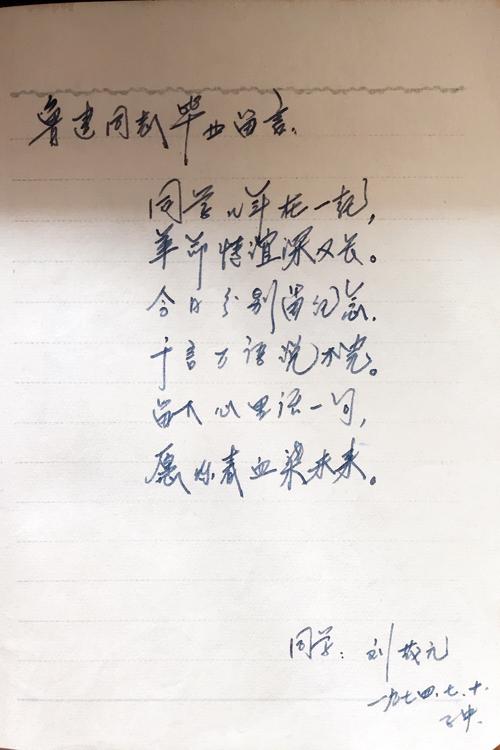 鲁建同志毕业留言:
同学几年在一起,
革命情谊深又长。
今日分别留纪念,
千言万语说不完。
留下心里话一句,
愿你春血染未来。
同学: 刘敬元
一九七四.七.十.